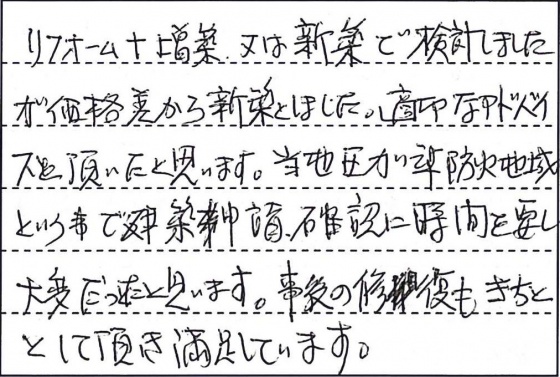 リフォーム+増築、又は新築で検討しました
が価格差から新築としました。適切なアドバイ
スを頂いたと思います。当地区が準防火地域
という事で建築申請、確認に時間を要し
大変だったと思います。事後の修復もきちっ
として頂き満足しています。